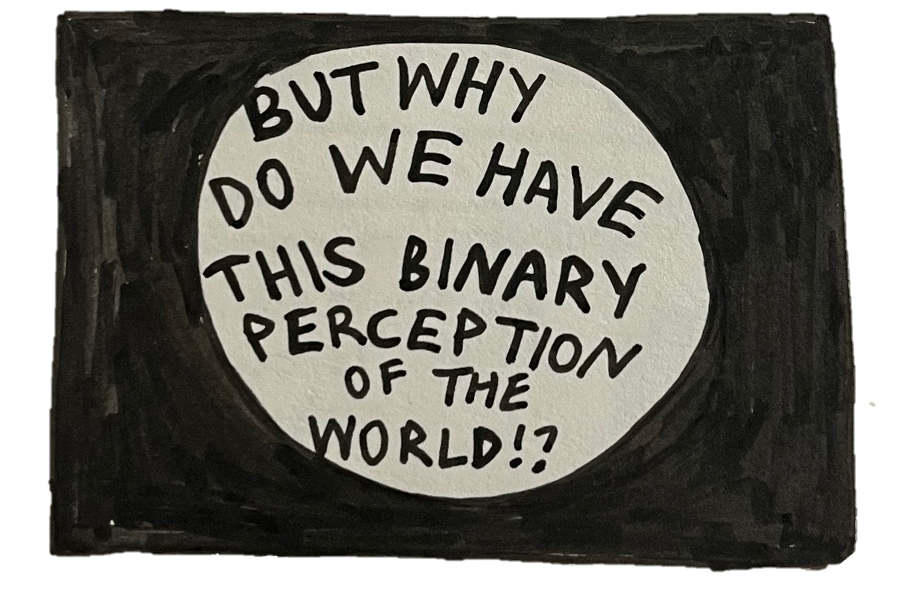 BUT WHY
DO WE HAVE
THIS BINARY
PERCEPTION
OF THE
WORLD!?